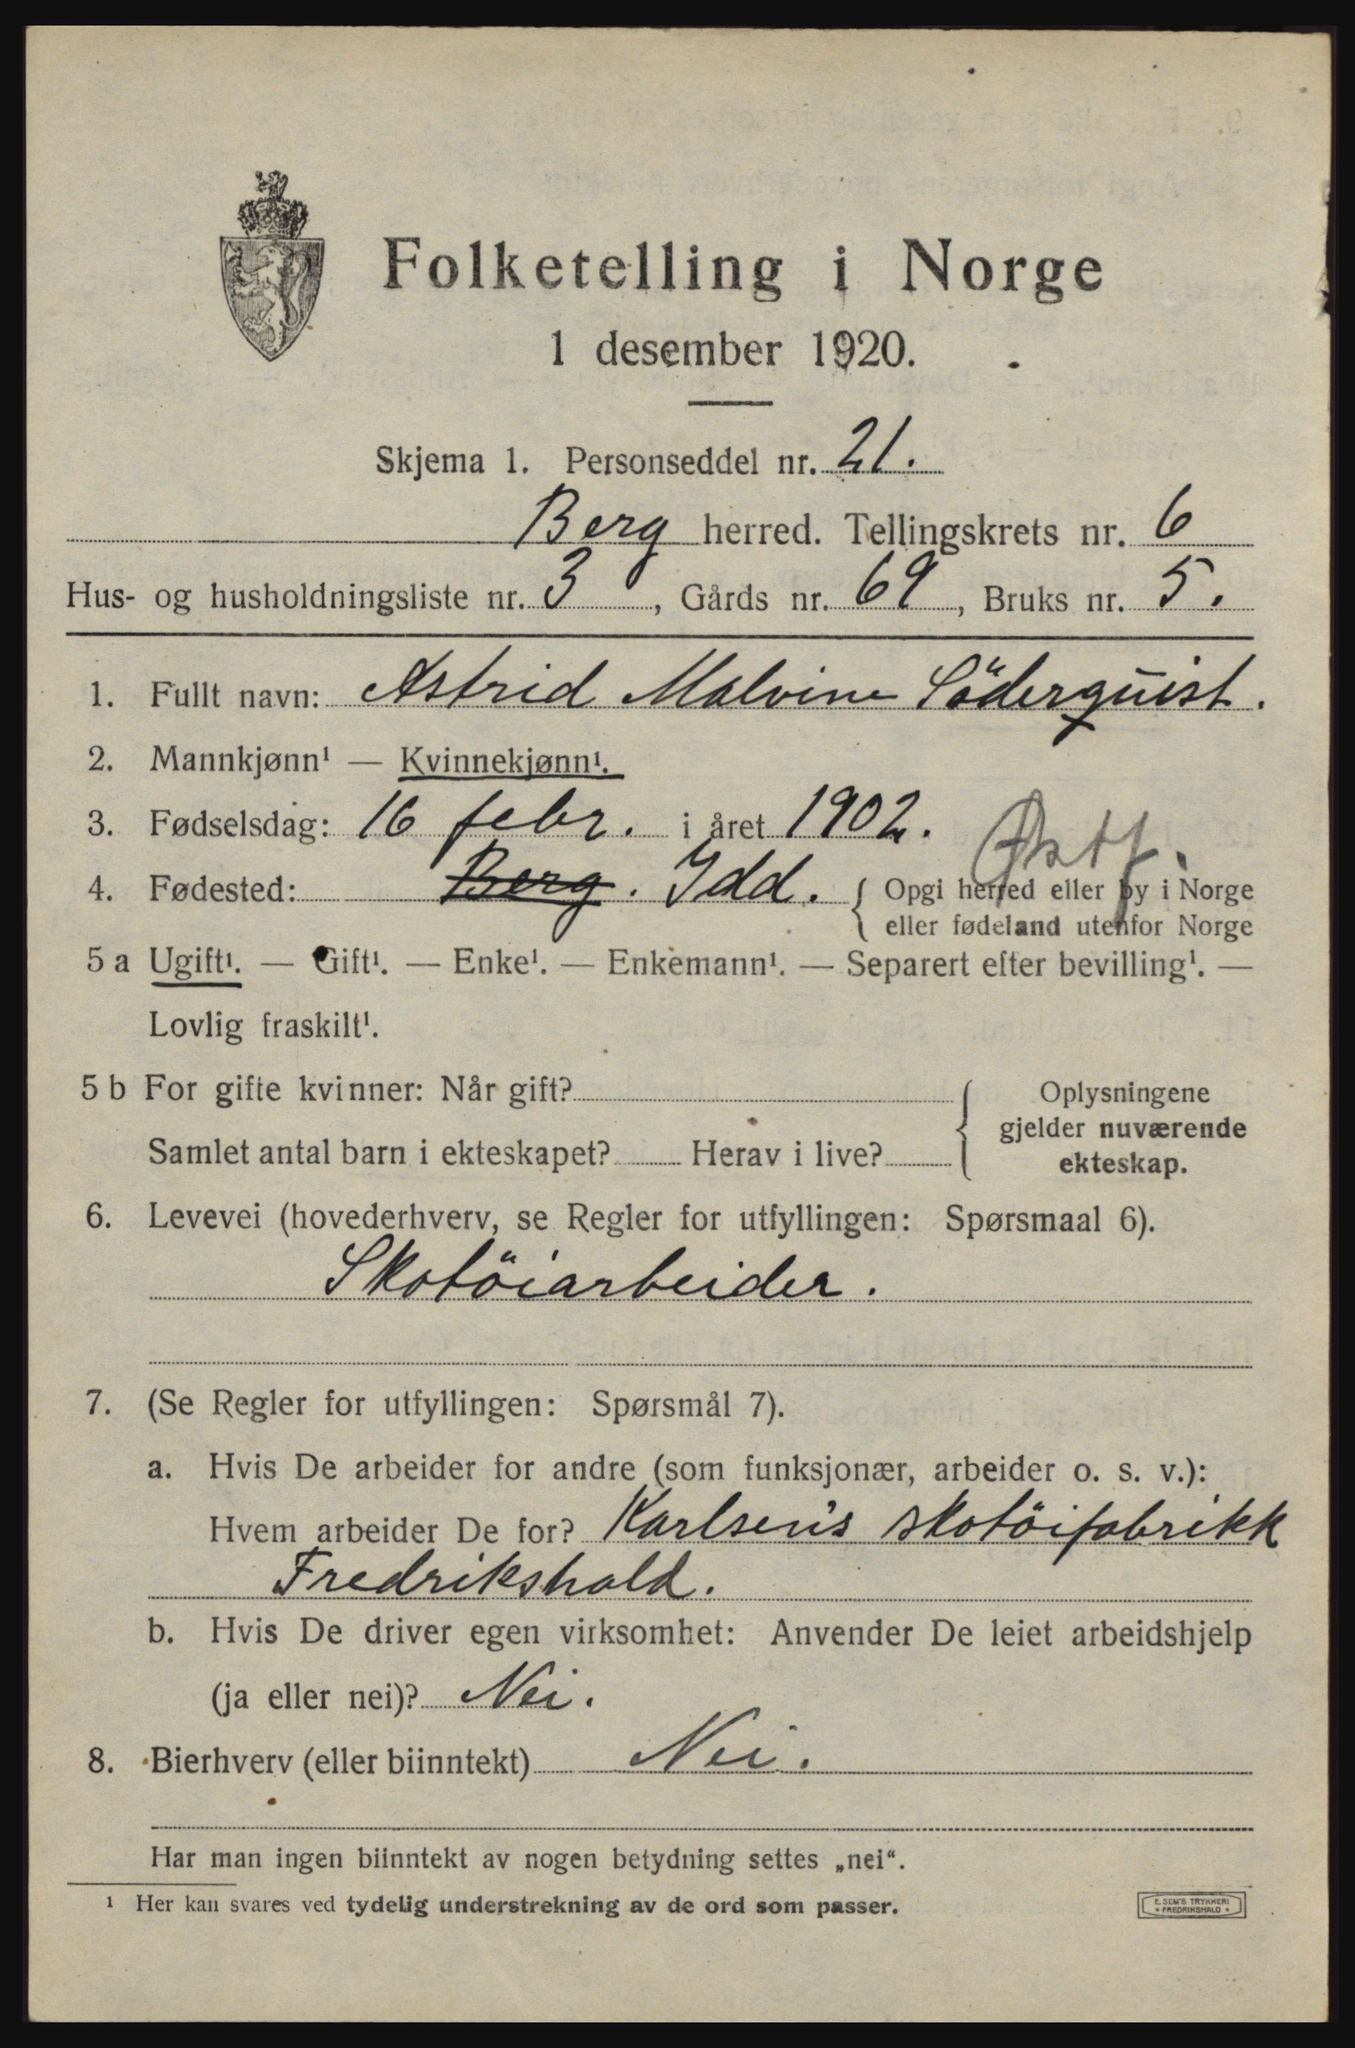 Folketelling i Norge
1 desember 1920.
Skjema 1. Personseddel nr. 21.
Berg herred. Tellingskrets nr. 6
Hus- og husholdningsliste nr. 3, Gårds nr. 69, Bruks nr. 5.
1. Fullt navn: Astrid Malvine Söderquist.
2. Mannkjønn¹ — Kvinnekjønn¹.
3. Fødselsdag: 16 febr. i året 1902.
Østf.
4. Fødested: Berg. Idd. { Opgi herred eller by i Norge
eller fødeland utenfor Norge
5 a Ugift¹. — Gift¹. — Enke¹. — Enkemann¹. — Separert efter bevilling¹. —
Lovlig fraskilt¹.
5 b For gifte kvinner: Når gift?
Samlet antal barn i ekteskapet? Herav i live?
Oplysningene
gjelder nuværende
ekteskap.
6. Levevei (hovederhverv, se Regler for utfyllingen: Spørsmaal 6).
Skotöiarbeider.
7. (Se Regler for utfyllingen: Spørsmål 7).
a. Hvis De arbeider for andre (som funksjonær, arbeider o. s. v.):
Hvem arbeider De for? Karlsen's skotöifabrikk
Fredrikshald.
b. Hvis De driver egen virksomhet: Anvender De leiet arbeidshjelp
(ja eller nei)? Nei.
8. Bierhverv (eller biinntekt) Nei.
Har man ingen biinntekt av nogen betydning settes „nei“.
¹ Her kan svares ved tydelig understrekning av de ord som passer.
E. SEM'S TRYKKERI
FREDRIKSHALD